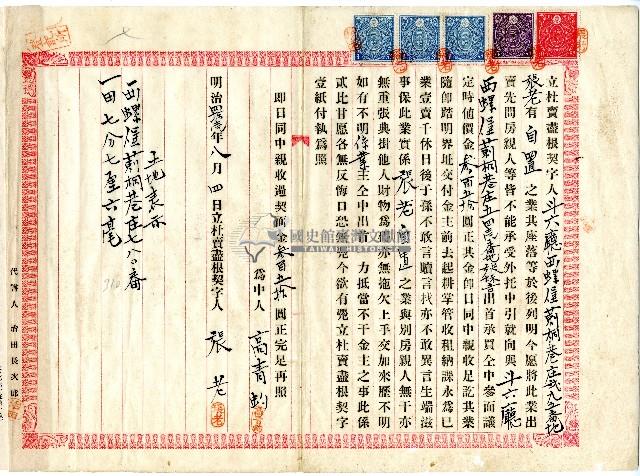 立杜賣盡根契字人斗六廳西螺堡莿桐巷庄
張老有自置之業其座落等於後列明今愿將此業出
賣先問房親人等皆不能承受外托中引就向與斗六廳
西螺堡莿桐巷庄 出首承買仝中參面議
定時値價金參百五拾圓正其金卽日同中親收足訖其業
隨卽踏明界址交付金主前去起耕掌管收租納課永爲己
業壹賣千休日後子孫不敢言贖言找亦不敢異言生端滋
事保此業實係張老自置之業與別房親人無干亦
無重張典掛他人財物爲碍亦無拖欠上手交加來歷不明
如有不明係業主仝中出首一力抵當不干金主之事此係
貳比甘愿各無反悔口恐無凭今欲有凴立杜賣盡根契字
壹紙付執爲照
卽日同中親收過契面金參百五拾圓正完足再照
爲中人 高青
明治 年八月四日立杜賣盡根契字人 張老
土地表示
西螺堡莿桐巷庄七八番
一田七分七厘六毫
代書人 治田長次郎
國史館臺灣文獻館
TAIWAN HISTORICA